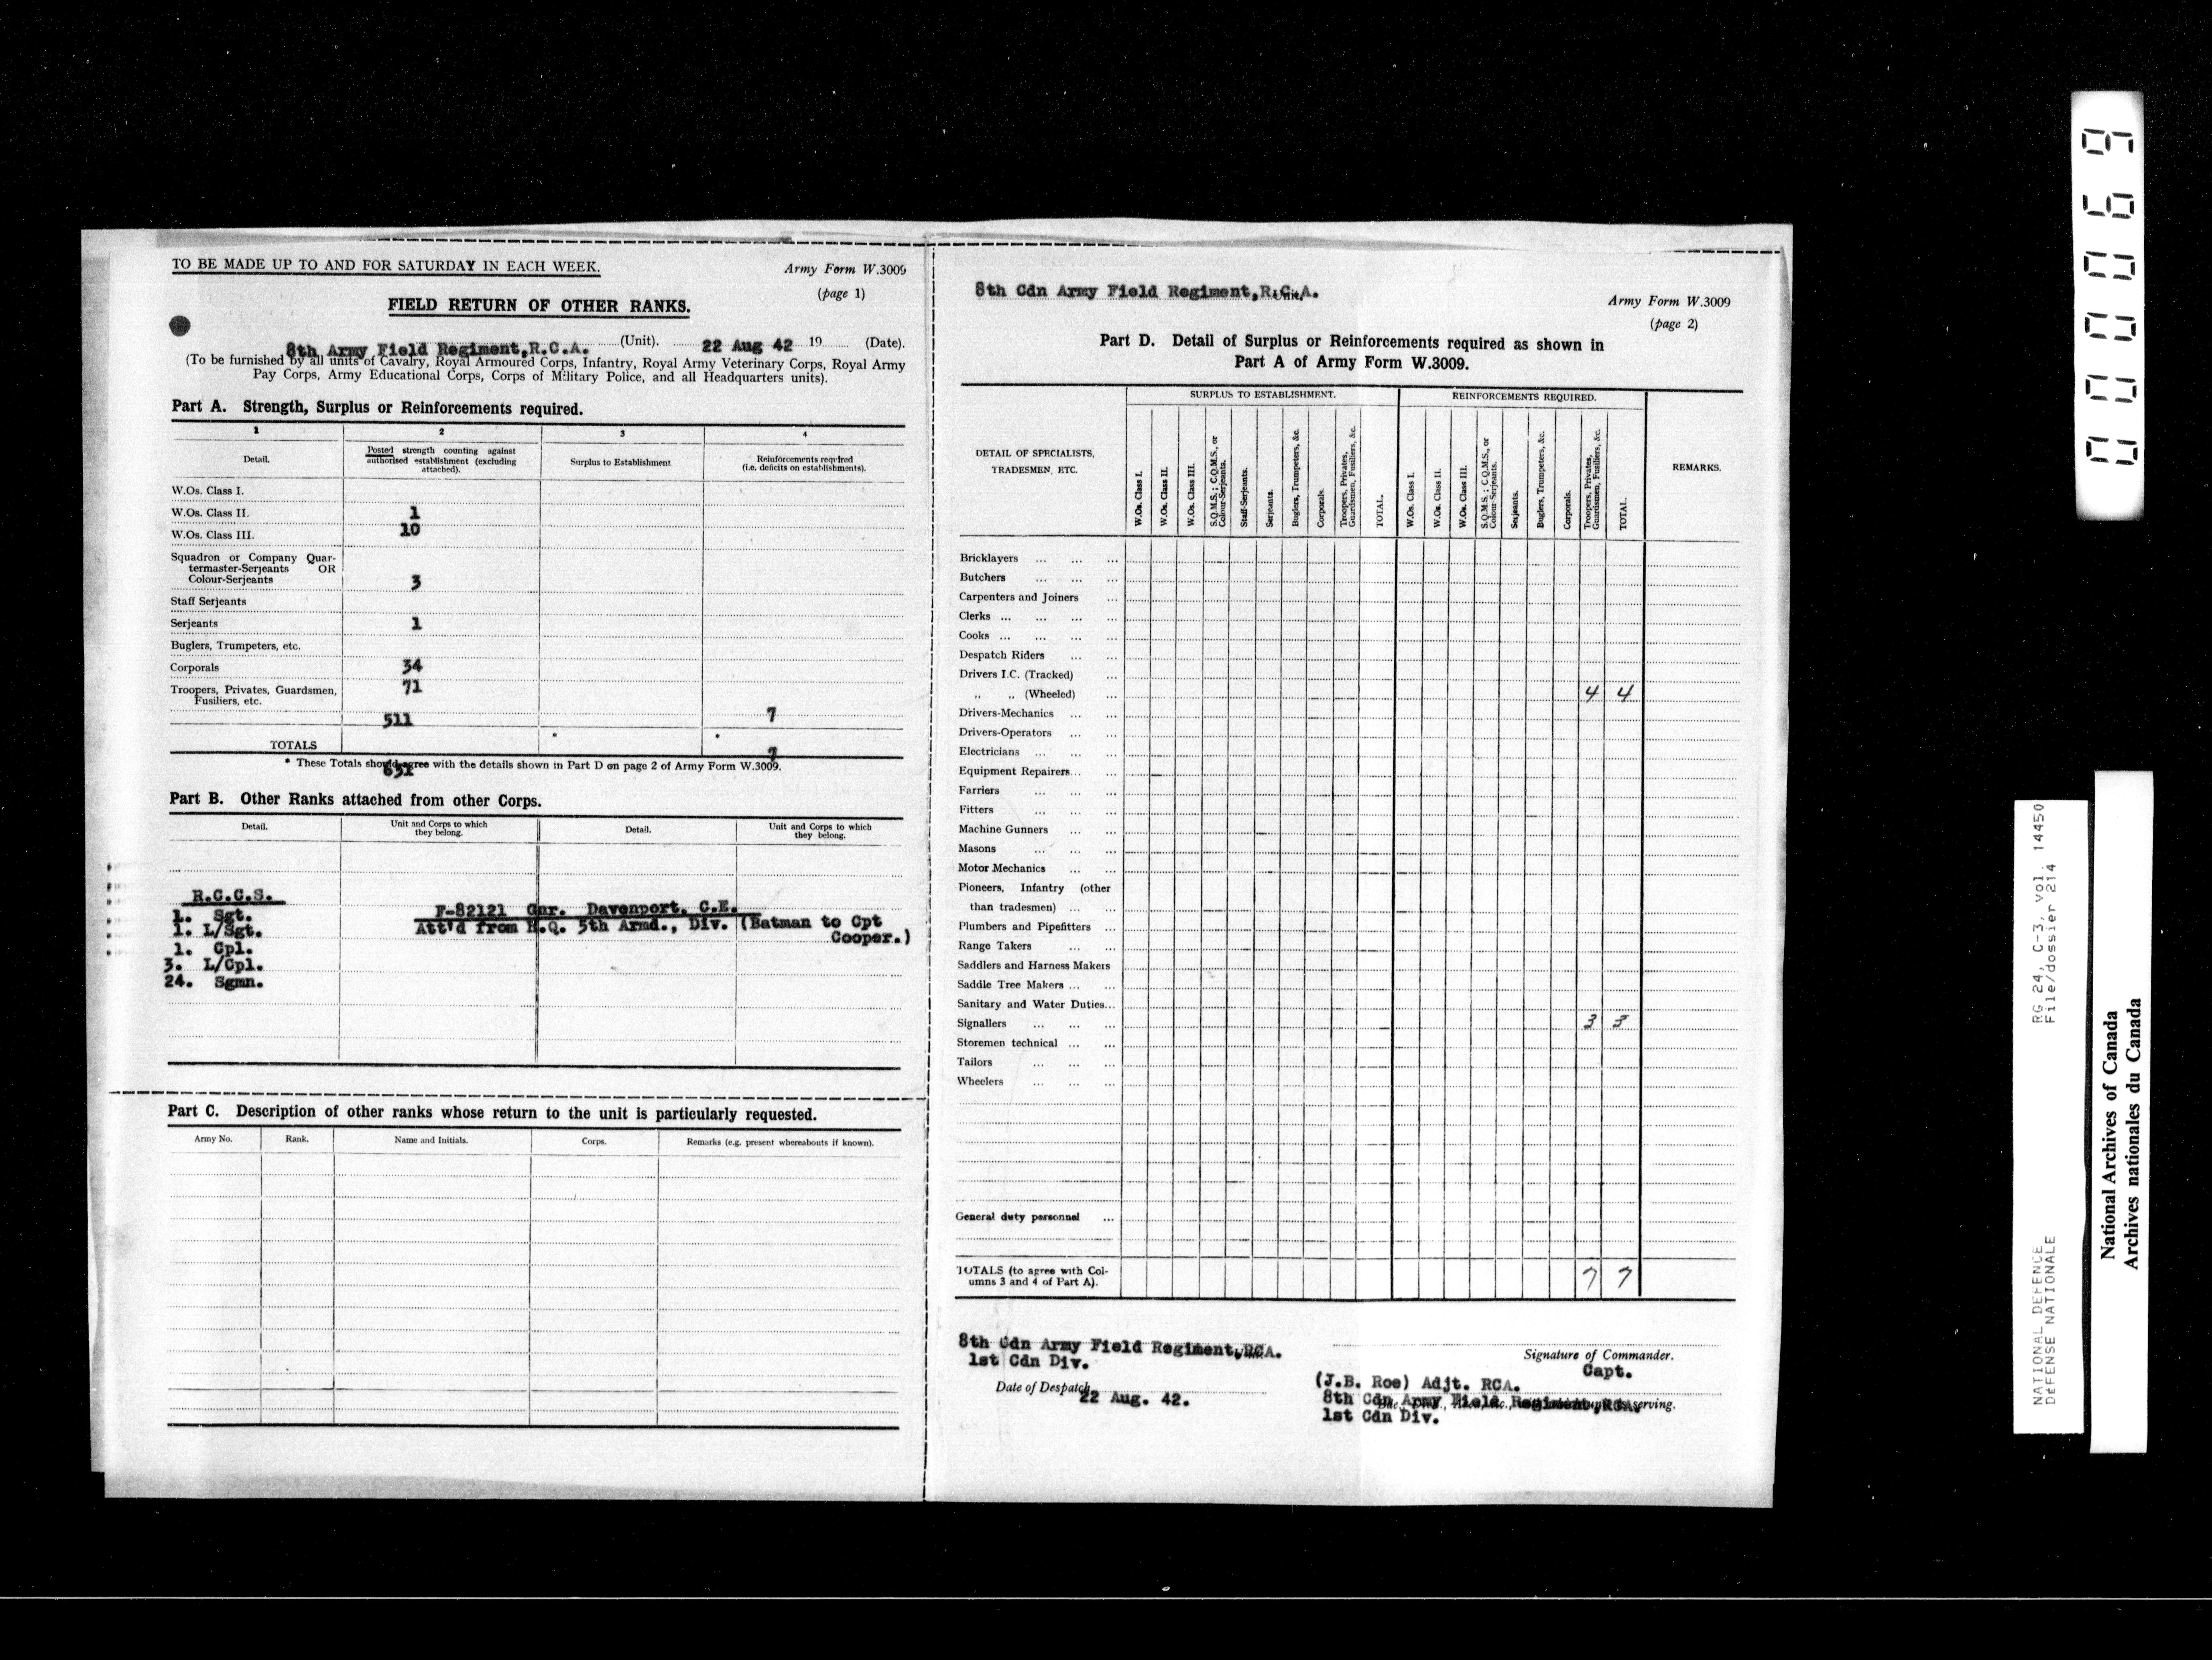 TO BE MADE UP TO AND FOR SATURDAY IN EACH WEEK.
Army Form W.3009
(page 1)
FIELD RETURN OF OTHER RANKS.
8th Army Field Regiment,R.C.A. (Unit). 22 Aug 42 19 (Date).
(To be furnished by all units of Cavalry, Royal Armoured Corps, Infantry, Royal Army Veterinary Corps, Royal Army
Pay Corps, Army Educational Corps, Corps of Military Police, and all Headquarters units).
Part A. Strength, Surplus or Reinforcements required.
1 2 3 4
Detail.
Posted strength counting against
authorised establishment (excluding
attached).
Surplus to Establishment
Reinforcements required
(i.e. deficits on establishments).
W.Os. Class I.
W.Os. Class II. 1
W.Os. Class III. 10
Squadron or Company Quar-
termaster-Serjeants OR
Colour-Serjeants 3
Staff Serjeants
Serjeants 1
Buglers, Trumpeters, etc.
Corporals 34
Troopers, Privates, Guardsmen, 71
Fusiliers, etc.
511 7
TOTALS * * 7
* These Totals should agree with the details shown in Part D on page 2 of Army Form W.3009.
631
Part B. Other Ranks attached from other Corps.
Detail.
Unit and Corps to which
they belong.
Detail.
Unit and Corps to which
they belong.
R.C.C.S.
1. Sgt.
1. L/Sgt.
1. Cpl.
3. L/Cpl.
24. Sgmn.
F-82121 Gnr. Davenport, C.E.
Att'd from H.Q. 5th Armd., Div. (Batman to Cpt
Cooper.)
Part C. Description of other ranks whose return to the unit is particularly requested.
Army No. Rank. Name and Initials. Corps. Remarks (e.g. present whereabouts if known).
8th Cdn Army Field Regiment,R.C.A.
Unit.
Army Form W.3009
(page 2)
Part D. Detail of Surplus or Reinforcements required as shown in
Part A of Army Form W.3009.
DETAIL OF SPECIALISTS,
TRADESMEN, ETC.
SURPLUS TO ESTABLISHMENT.
W.Os. Class I.
W.Os. Class II.
W.Os. Class III.
S.Q.M.S.; C.Q.M.S., or
Colour-Serjeants.
Staff-Serjeants.
Serjeants.
Buglers, Trumpeters, &c.
Corporals.
Troopers, Privates,
Guardsmen, Fusiliers, &c.
TOTAL.
REINFORCEMENTS REQUIRED.
W.Os. Class I.
W.Os. Class II.
W.Os. Class III.
S.Q.M.S.; C.Q.M.S., or
Colour-Serjeants.
Serjeants.
Buglers, Trumpeters, &c.
Corporals.
Troopers, Privates,
Guardsmen, Fusiliers, &c.
TOTAL.
REMARKS.
Bricklayers ... ... ...
Butchers ... ... ...
Carpenters and Joiners ...
Clerks ... ... ... ...
Cooks ... ... ... ...
Despatch Riders ... ...
Drivers I.C. (Tracked) ...
„ „ (Wheeled) ... 4 4
Drivers-Mechanics ... ...
Drivers-Operators ... ...
Electricians ... ... ...
Equipment Repairers... ...
Farriers ... ... ...
Fitters ... ... ...
Machine Gunners ... ...
Masons ... ... ...
Motor Mechanics ... ...
Pioneers, Infantry (other
than tradesmen) ... ...
Plumbers and Pipefitters ...
Range Takers ... ...
Saddlers and Harness Makers
Saddle Tree Makers ... ...
Sanitary and Water Duties...
Signallers ... ... ... 3 3
Storemen technical ... ...
Tailors ... ... ...
Wheelers ... ... ...
General duty personnel ...
TOTALS (to agree with Col-
umns 3 and 4 of Part A). 7 7
8th Cdn Army Field Regiment,RCA.
1st Cdn Div.
Date of Despatch
22 Aug. 42.
Signature of Commander.
Capt.
(J.B. Roe) Adjt. RCA.
8th Cdn Army Field Regiment,RCA. serving.
1st Cdn Div.
000069
RG 24, C-3, vol. 14450
File/dossier 214
NATIONAL DEFENCE
DéFENSE NATIONALE
National Archives of Canada
Archives nationales du Canada